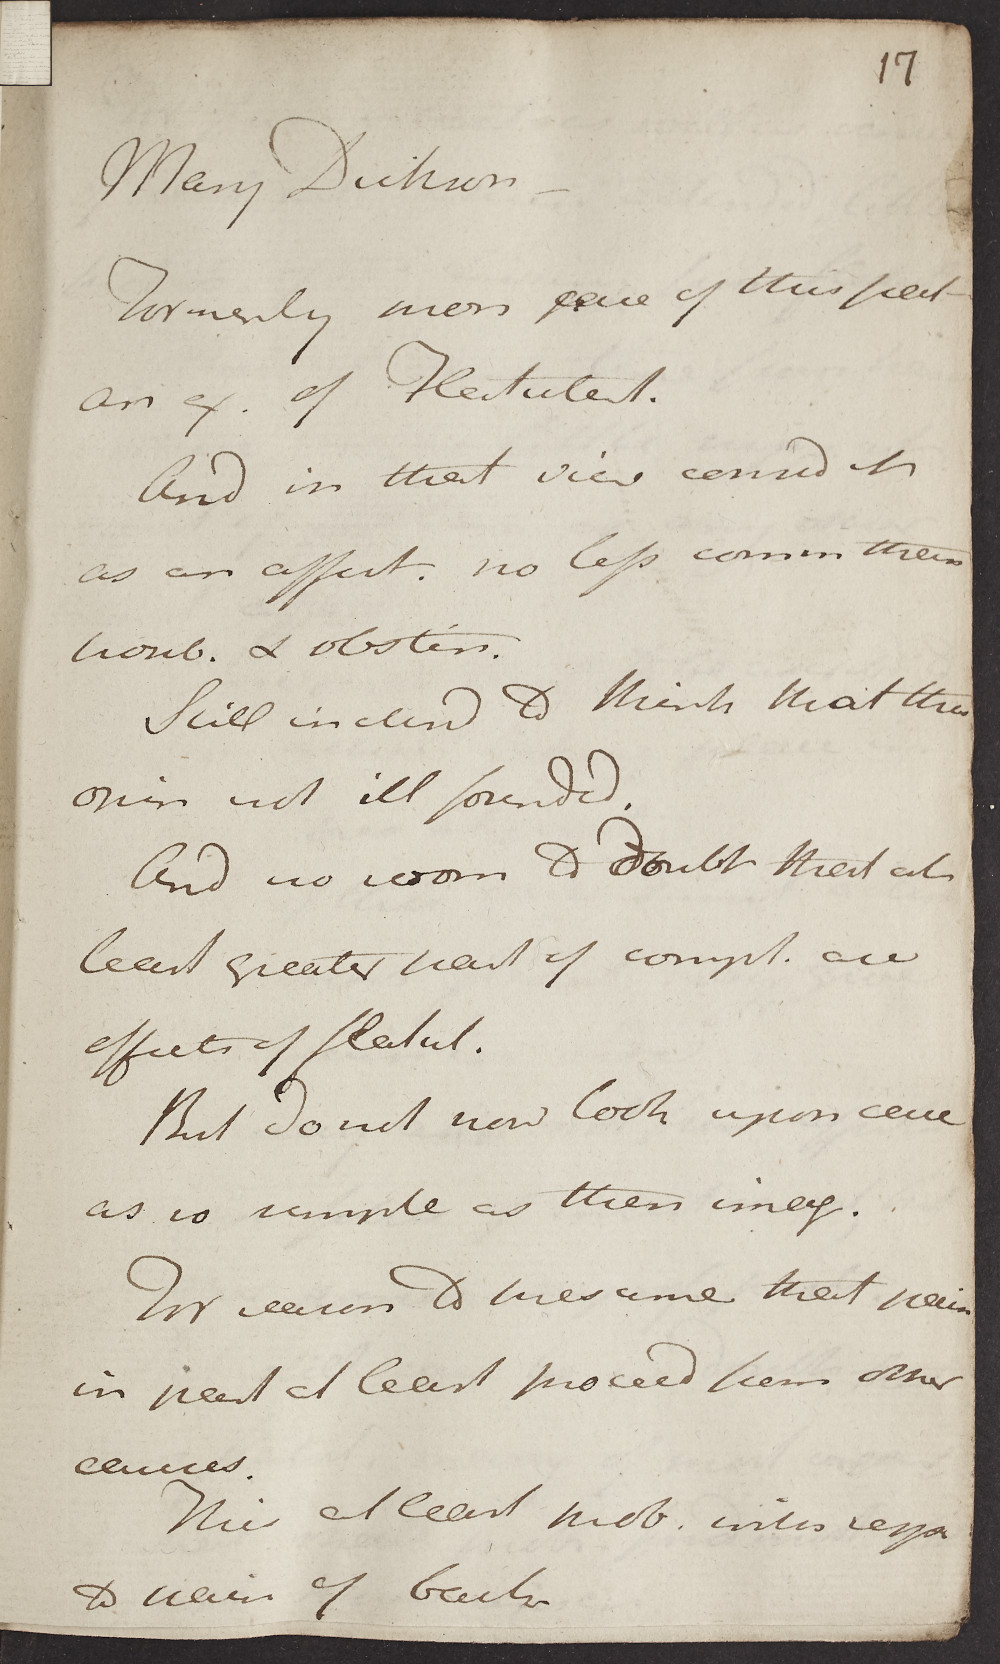 17
Mary Dickson –
Formerly more case of this pat
an ex. of Flatulent.
And in that view consid it
as an affect. no less comm then
troub. & obstin.
Still inclind to think that this
opin not ill founded.
And no room to doubt that at
least greater part of compt. are
effects of flatul.
But do not now look upon case
as so simple as then imag.
For reason to presume that pain
in part at least proceed from other
causes.
This at least prob. with respt
to pain of back